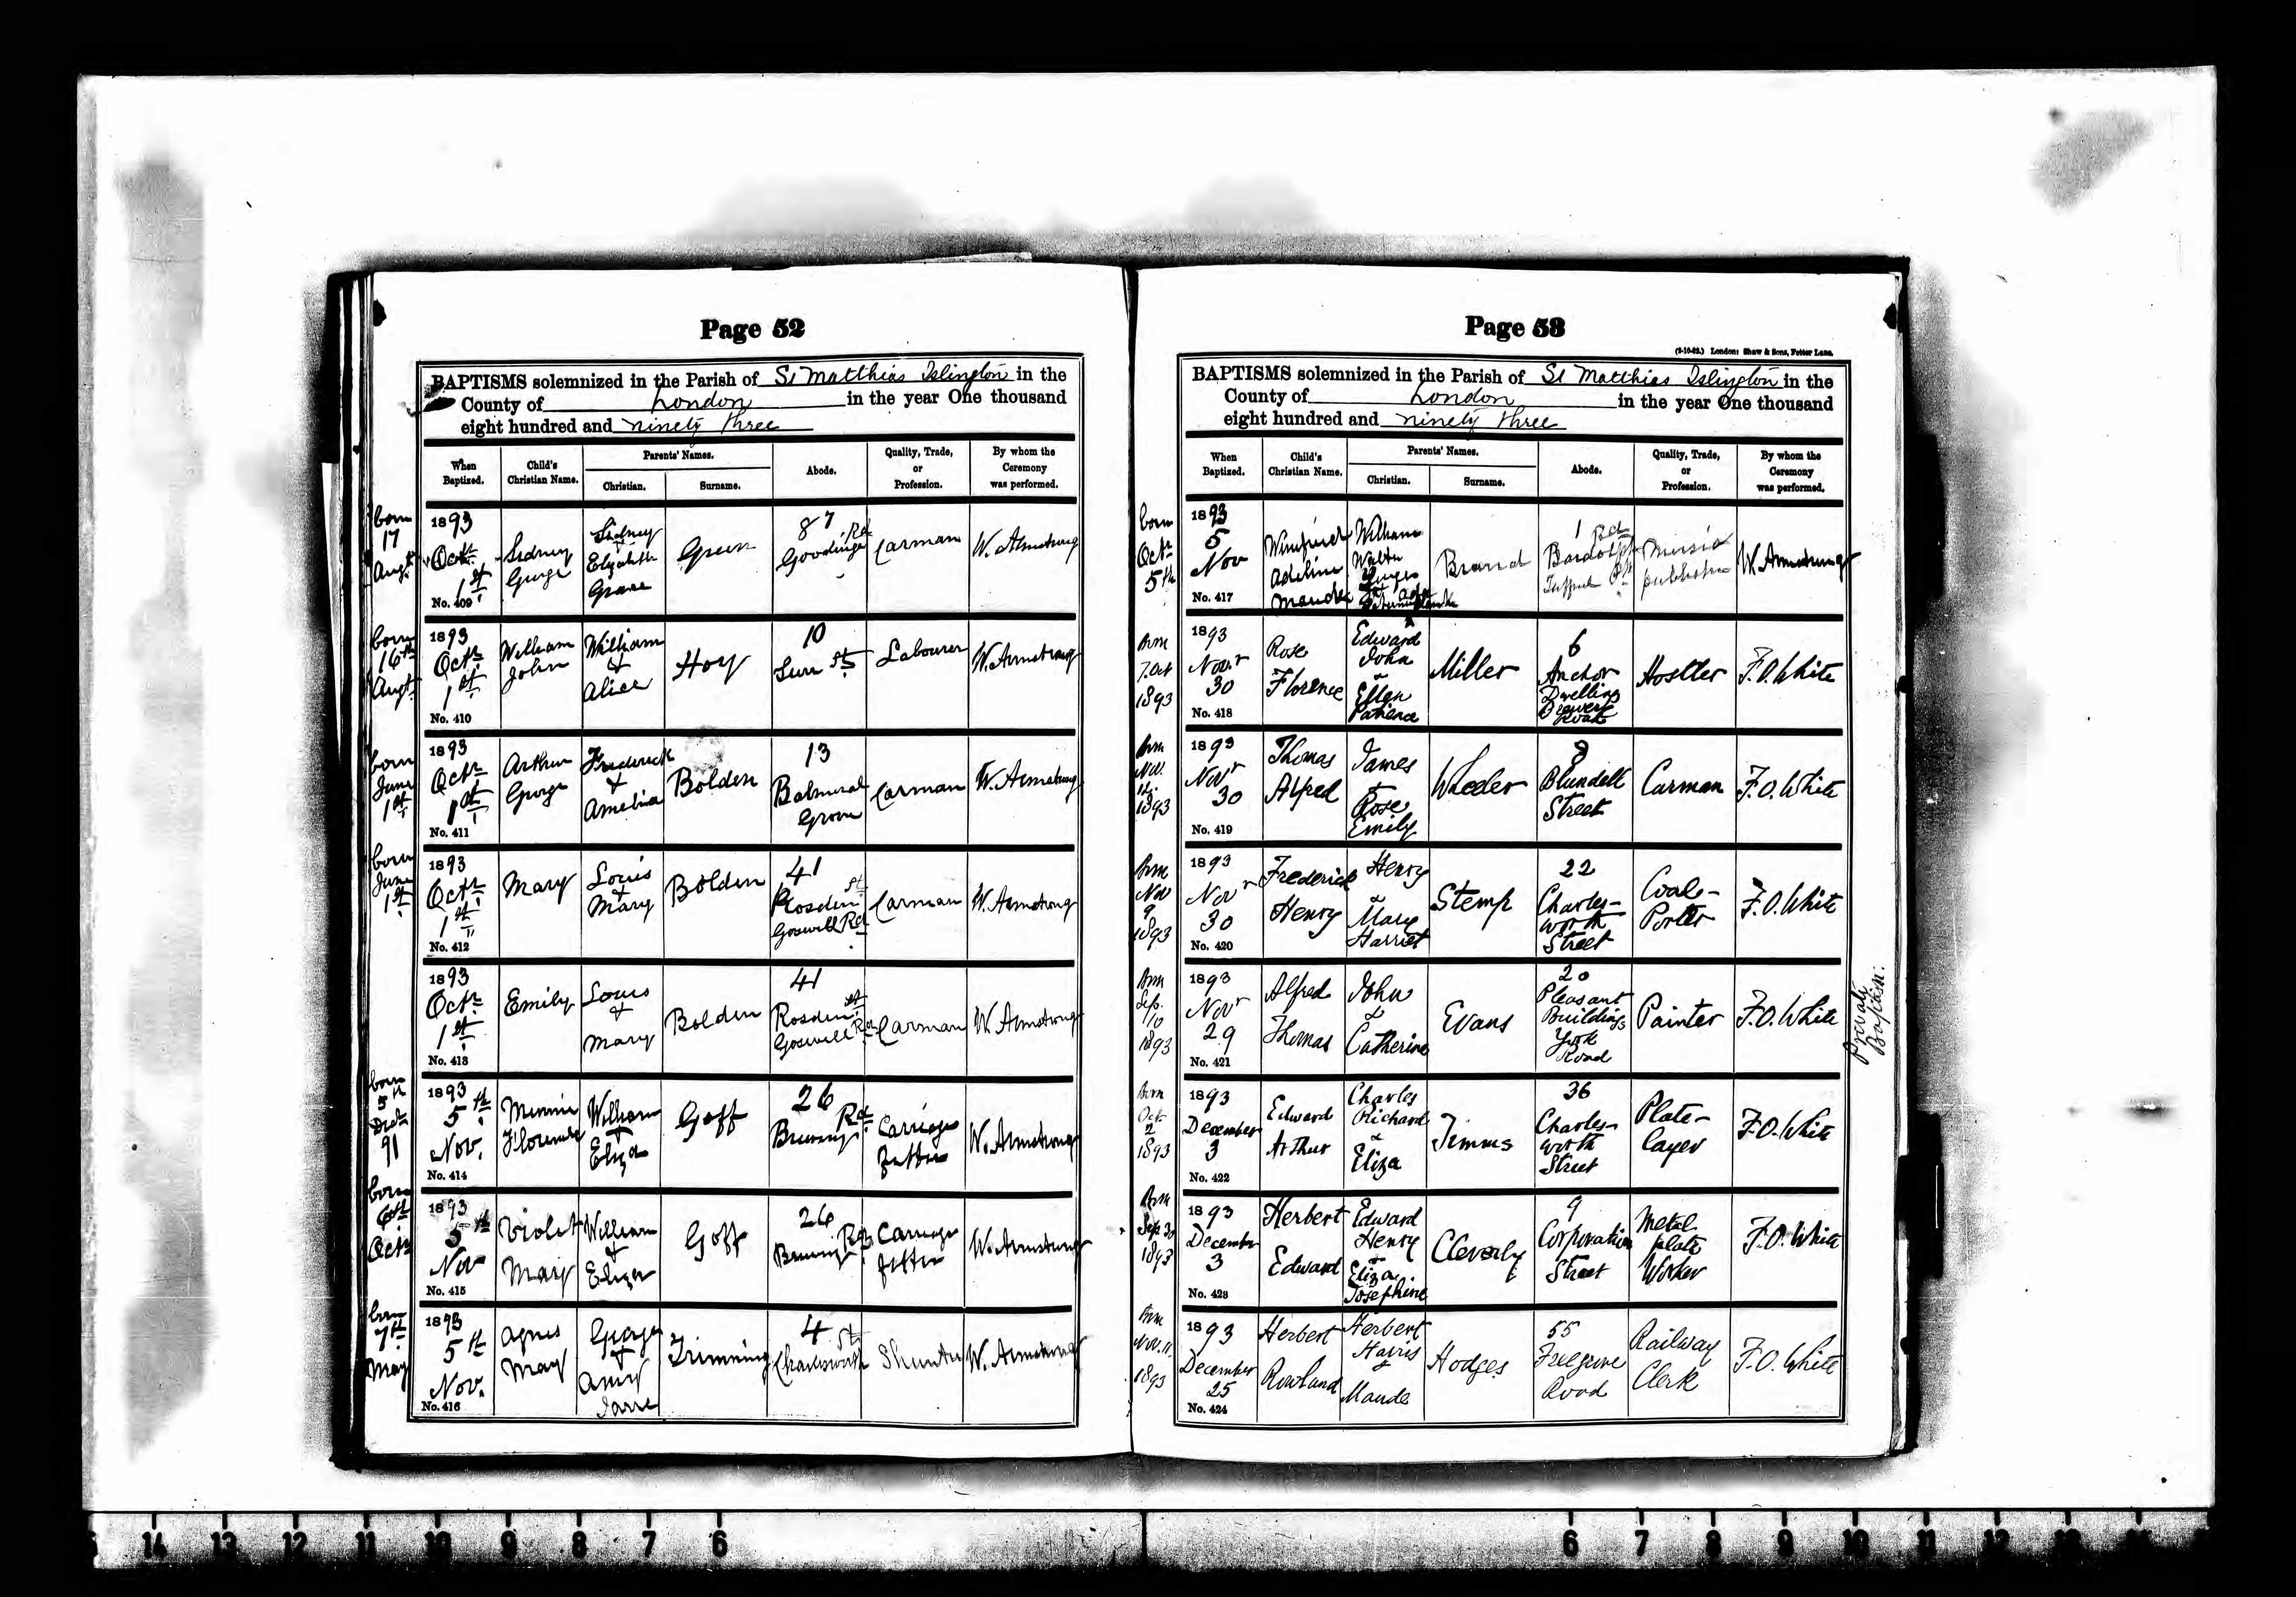 Page 52
BAPTISMS solemnized in the Parish of St Matthias Islington in the
County of London in the year One thousand
eight hundred and ninety three
When Baptized.
Child's Christian Name.
Parents' Names.
Christian.
Surname.
Abode.
Quality, Trade, or Profession.
By whom the Ceremony was performed.
born
17
Augt
1893
Octr
1st
No. 409
Sidney
George
Sidney
&
Elizabeth
Grace
Green
87
Goodinge Rd
Carman
W. Armstrong
born
16th
Augt
1893
Octr
1st
No. 410
William
John
William
&
Alice
Hoy
10
St
Labourer
W. Armstrong
born
June
1st
1893
Octr
1st
No. 411
Arthur
George
Frederick
&
Amelia
Bolden
13
Balmoral
Grove
Carman
W. Armstrong
born
June
1st
1893
Octr
1st
No. 412
Mary
Louis
&
Mary
Bolden
41
Rosden St
Goswell Rd
Carman
W. Armstrong
1893
Octr
1st
No. 413
Emily
Louis
&
Mary
Bolden
41
Rosden St
Goswell Rd
Carman
W. Armstrong
born
5th
Decr
91
1893
5th
Nov.
No. 414
Minnie
Florence
William
&
Eliza
Goff
26
Brewery Rd
Carriage
fitter
W. Armstrong
born
6th
Octr
1893
5th
Nov
No. 415
Violet
Mary
William
&
Eliza
Goff
26
Brewery Rd
Carriage
fitter
W. Armstrong
born
7th
May
1893
5th
Nov.
No. 416
Agnes
May
George
&
Amy
Jane
Trimming
4
Charlesworth St
Shunter
W. Armstrong
Page 53
(2-10-92.) London: Shaw & Sons, Fetter Lane.
BAPTISMS solemnized in the Parish of St Matthias Islington in the
County of London in the year One thousand
eight hundred and ninety three
When Baptized.
Child's Christian Name.
Parents' Names.
Christian.
Surname.
Abode.
Quality, Trade, or Profession.
By whom the Ceremony was performed.
born
Octr
5th
1893
5
Nov
No. 417
Winifred
Adeline
Maude
William
Walter
Brand
1
Bardolph Rd
Tufnell Pk
Music
publisher
W. Armstrong
Born
7. Oct
1893
1893
Novr
30
No. 418
Rose
Florence
Edward
John
&
Ellen
Patience
Miller
6
Anchor
Dwelling
Brewery
Road
Hostler
F.O. White
Born
Nov.
1893
1893
Novr
30
No. 419
Thomas
Alfred
James
&
Rose
Emily
Wheeler
8
Blundell
Street
Carman
F.O. White
Born
Nov
9
1893
1893
Novr
30
No. 420
Frederick
Henry
Henry
&
Mary
Harriet
Stemp
22
Charles-
worth
Street
Coal-
Porter
F.O. White
Born
Sep.
10
1893
1893
Novr
29
No. 421
Alfred
Thomas
John
&
Catherine
Evans
20
Pleasant
Buildings
York
Road
Painter
F.O. White
Private
Baptism:
Born
Oct
2
1893
1893
December
3
No. 422
Edward
Arthur
Charles
Richard
&
Eliza
Timms
36
Charles-
worth
Street
Plate-
layer
F.O. White
Born
Sep 30
1893
1893
December
3
No. 423
Herbert
Edward
Edward
Henry
&
Eliza
Josephine
Cleverly
9
Corporation
Street
Metal
plate
Worker
F.O. White
Born
Nov. 11.
1893
1893
December
25
No. 424
Herbert
Rowland
Herbert
Harris
&
Maude
Hodges
55
Freegrove
Road
Railway
Clerk
F.O. White
14 13 12 11 10 9 8 7 6
6 7 8 9 10 11 12 13 14